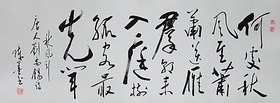 何處秋
風至蕭
蕭送雁
羣朝來
入庭樹
孤客最
先聞
秋風引
唐人劉禹錫詩
陳